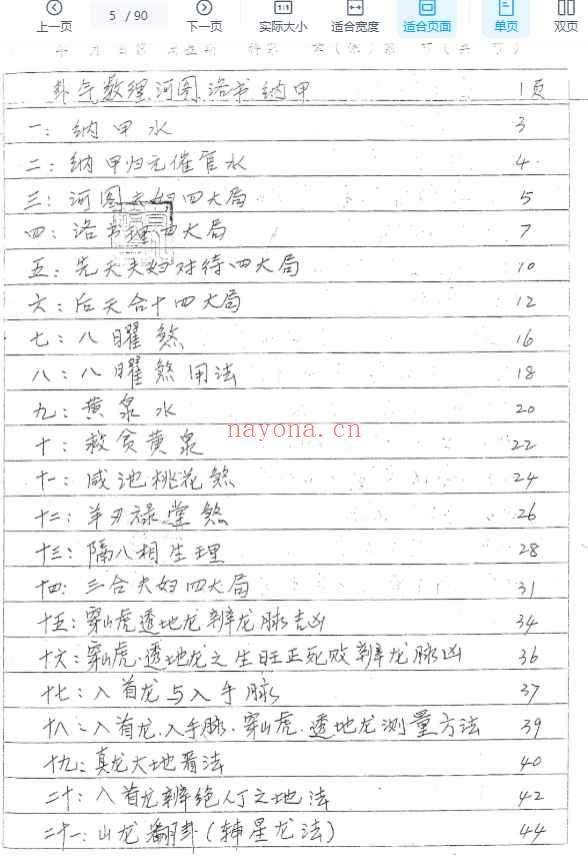 上一页 5 / 90 下一页 实际大小 适合宽度 适合页面 单页 双页
卦气数理河图洛书纳甲 1页
一：纳甲水 3
二：纳甲归元催官水 4
三：河图夫妇四大局 5
四：洛书 四大局 7
五：先天夫妇对待四大局 10
六：后天合十四大局 12
七：八曜煞 16
八：八曜煞用法 18
九：黄泉水 20
十：救贫黄泉 22
nayona.cn
十一：咸池桃花煞 24
十二：羊刃禄堂煞 26
十三：隔八相生理 28
十四：三合夫妇四大局 31
十五：穿山虎透地龙辨龙脉吉凶 34
十六：穿山虎·透地龙之生旺正死败辨龙脉凶 36
十七：入首龙与入手脉 37
十八：入首龙.入手脉.穿山虎.透地龙测量方法 39
十九：真龙大地看法 40
二十：入首龙辨绝人丁之地法 42
二十一：山龙翻卦(辅星龙法) 44